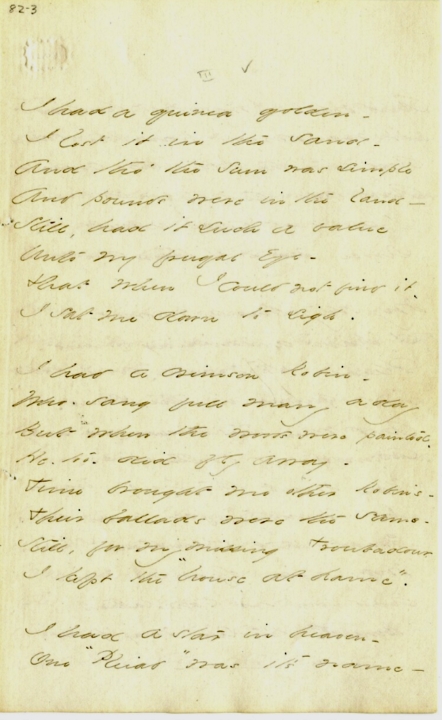 82-3
III ✓
I had a guinea golden -
I lost it in the sand -
And tho' the sum was simple
And pounds were in the land -
Still, had it such a value
Unto my frugal Eye -
That when I could not find it -
I sat me down to sigh.
I had a crimson Robin -
Who sang full many a day
But when the woods were painted -
He, too, did fly away -
Time brought me other Robins -
Their ballads were the same -
Still, for my missing Troubadour
I kept the "house at hame".
I had a star in heaven -
One "Pleiad" was its name -